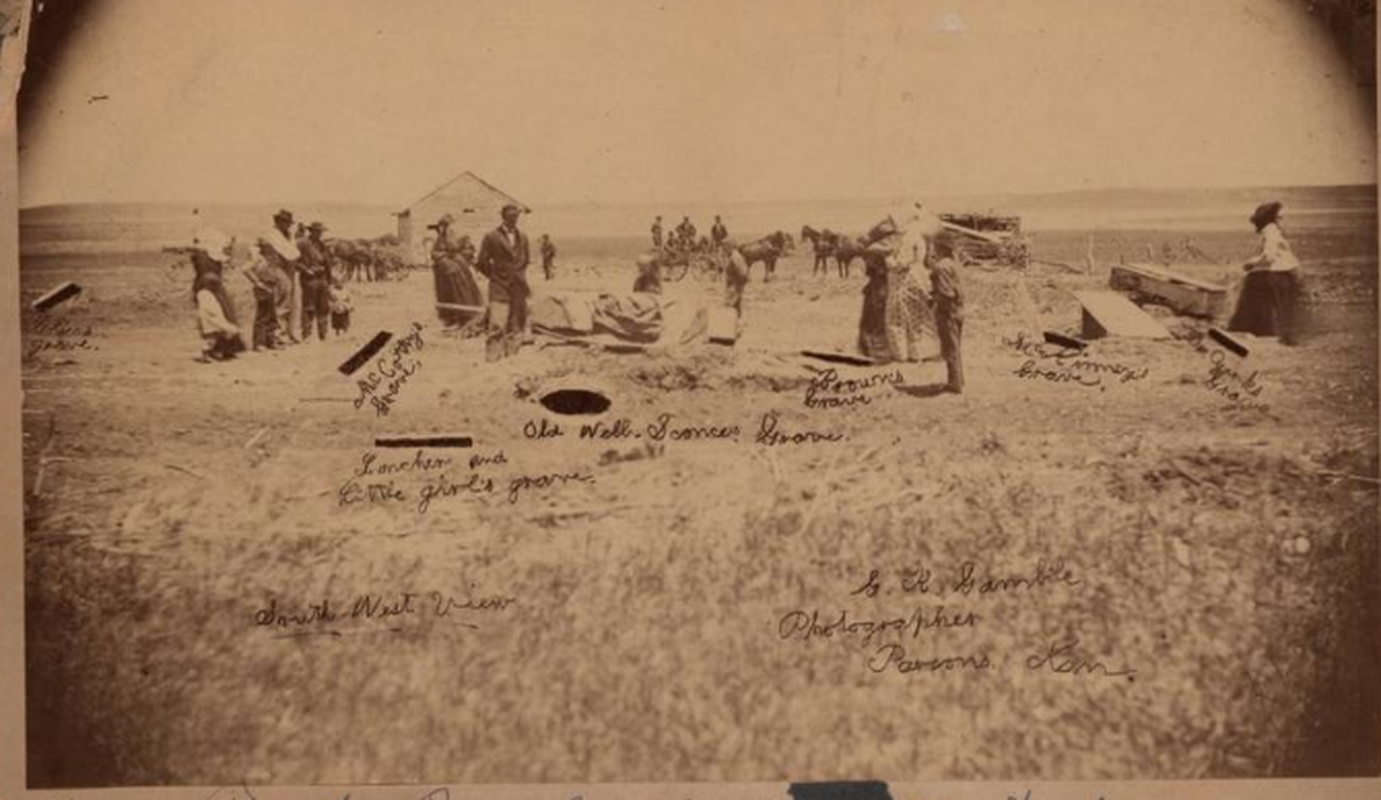 grave.
McCrotty's
Grave.
Brown's
Grave
Grave,
York's
Grave
Old Well. Grave.
Loncher and
Little girl's grave.
South West View
G. R. Gamble
Photographer
Parsons. Kan.